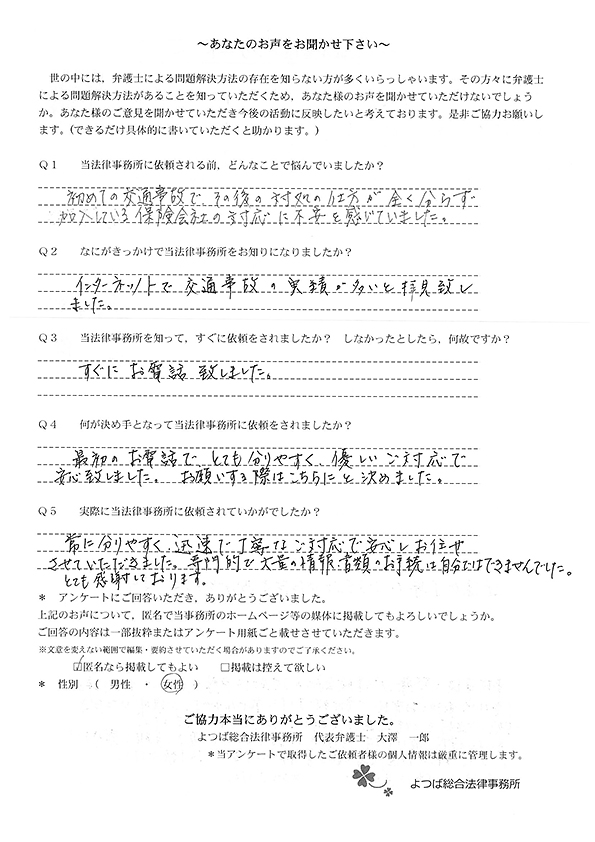 ～あなたのお声をお聞かせ下さい～
世の中には、弁護士による問題解決方法の存在を知らない方が多くいらっしゃいます。その方々に弁護士
による問題解決方法があることを知っていただくため、あなた様のお声を聞かせていただけないでしょう
か。あなた様のご意見を聞かせていただき今後の活動に反映したいと考えております。是非ご協力お願いし
ます。(できるだけ具体的に書いていただくと助かります。)
Q1 当法律事務所に依頼される前、どんなことで悩んでいましたか？
初めての交通事故で、その後の対処の仕方が全く分らず
加入している保険会社の対応に不安を感じていました。
Q2 なにがきっかけで当法律事務所をお知りになりましたか？
インターネットで交通事故の実績が多いと拝見致し
ました。
Q3 当法律事務所を知って、すぐに依頼をされましたか？ しなかったとしたら、何故ですか？
すぐにお電話致しました。
Q4 何が決め手となって当法律事務所に依頼をされましたか？
最初のお電話で、とても分りやすく、優しいご対応で
安心致しました。お願いする際はこちらにと決めました。
Q5 実際に当法律事務所に依頼されていかがでしたか？
常に分りやすく、迅速で丁寧なご対応で安心しお任せ
させていただきました。専門的で大量の情報書類のお手続は自分ではできませんでした。
とても感謝しております。
＊ アンケートにご回答いただき、ありがとうございました。
上記のお声について、匿名で当事務所のホームページ等の媒体に掲載してもよろしいでしょうか。
ご回答の内容は一部抜粋またはアンケート用紙ごと載せさせていただきます。
※文意を変えない範囲で編集・要約させていただく場合がありますのでご了承ください。
☑匿名なら掲載してもよい □掲載は控えて欲しい
＊ 性別 （ 男性 ・ 女性 ）
ご協力本当にありがとうございました。
よつば総合法律事務所 代表弁護士 大澤 一郎
＊当アンケートで取得したご依頼者様の個人情報は厳重に管理します。
よつば総合法律事務所